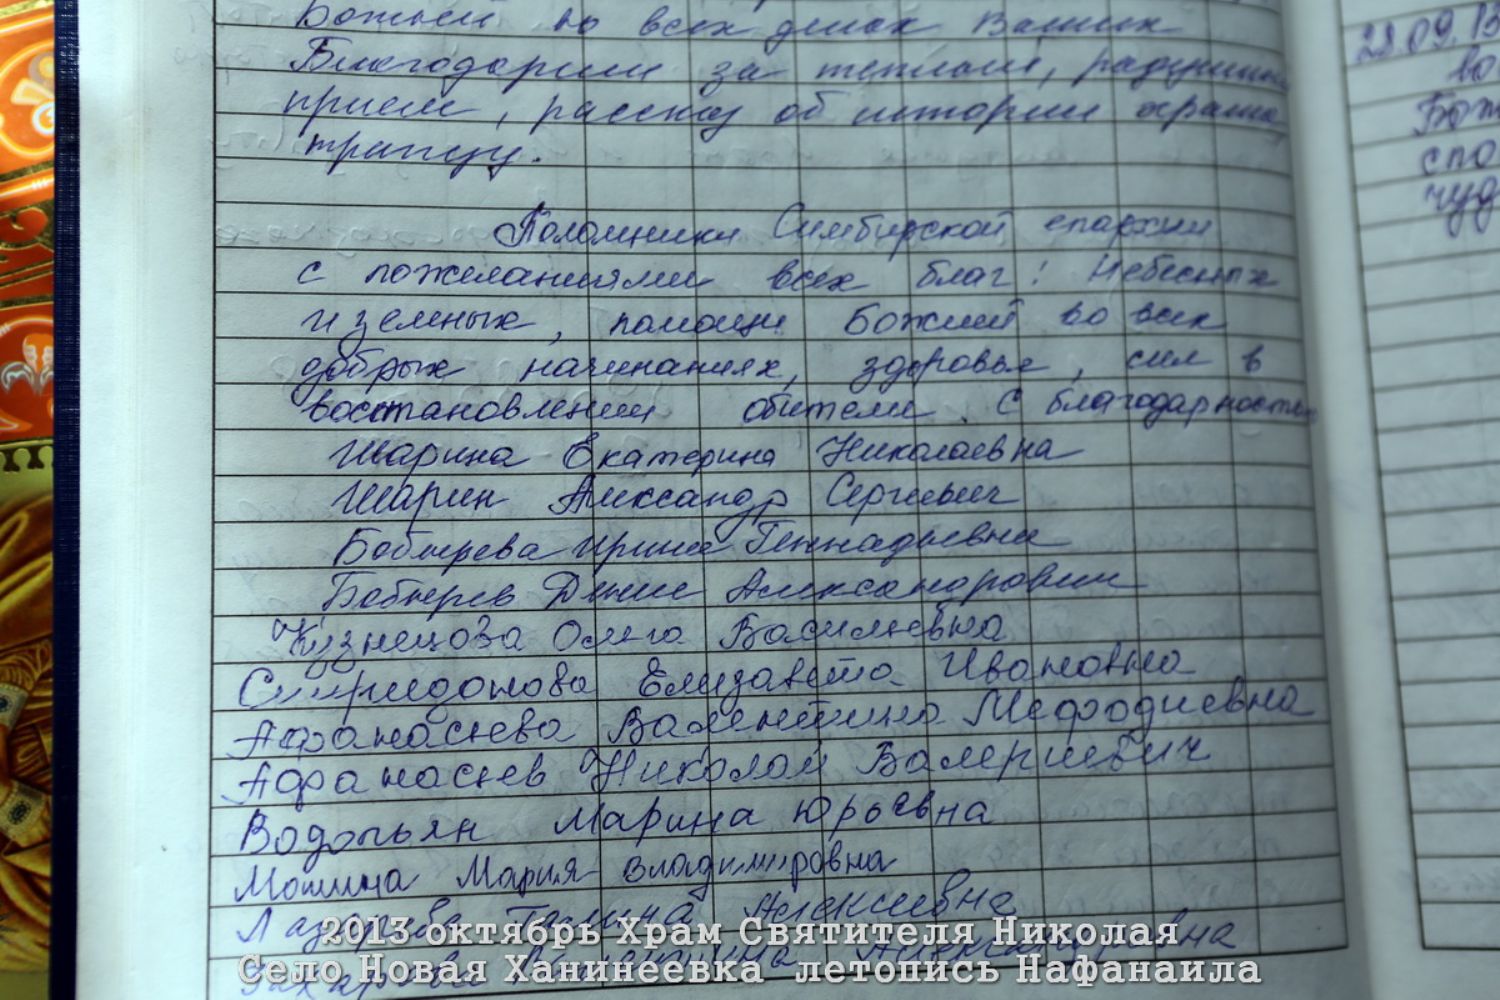 Божьей во всех делах Ваших
Благодарим за теплый, радушный
прием, рассказ об истории храма,
трапезу.
Паломники Симбирской епархии
с пожеланиями всех благ! Небесных
и земных, помощи Божией во всех
добрых начинаниях, здоровья, сил в
восстановлении обители. С благодарностью
Шарина Екатерина Николаевна
Шарин Александр Сергеевич
Бобырева Ирина Геннадьевна
Бобырев Денис Александрович
Кузнецова Ольга Васильевна
Спиридонова Елизавета Ивановна
Афанасьева Валентина Мефодиевна
Афанасьев Николай Валериевич
Водопьян Марина Юрьевна
Мошина Мария Владимировна
Лазарева Галина Алексеевна
Захарова Валентина Александровна
28.09.13
во
Бож
спо
чуд
2013 октябрь Храм Святителя Николая
Село Новая Ханинеевка летопись Нафанаила